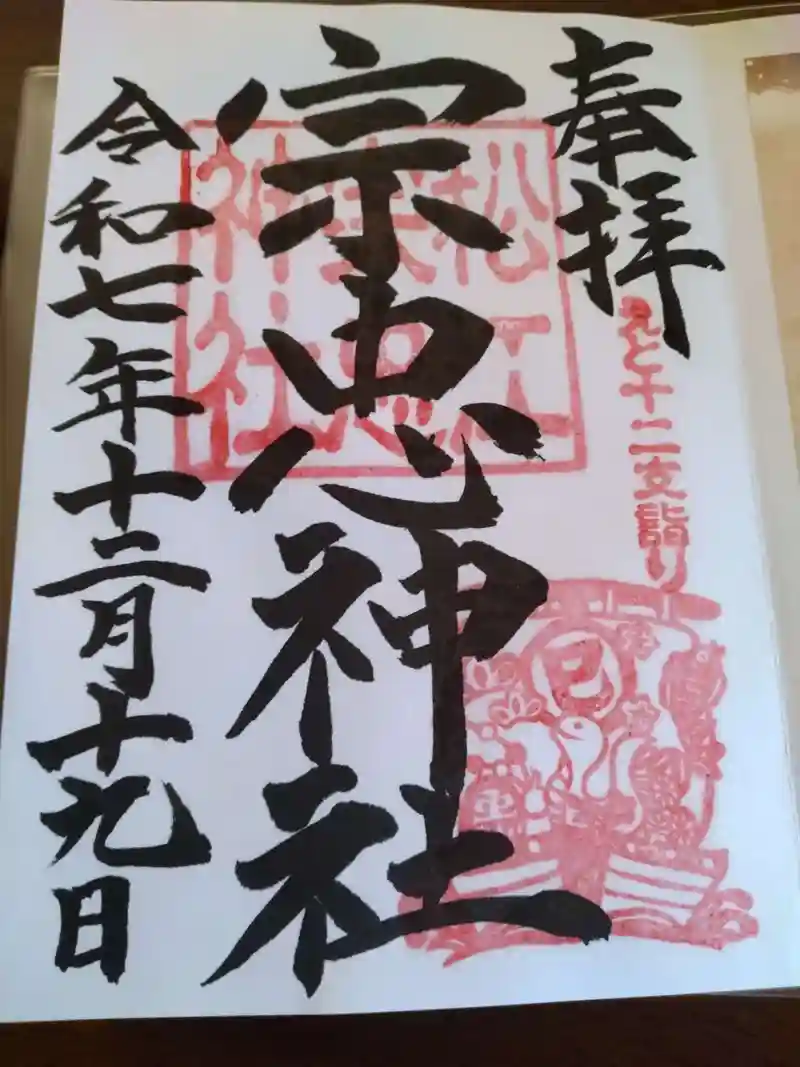 奉拝
えと十二支詣り
巳
宗忠神社
松江
宗忠
神社
令和七年十二月十九日